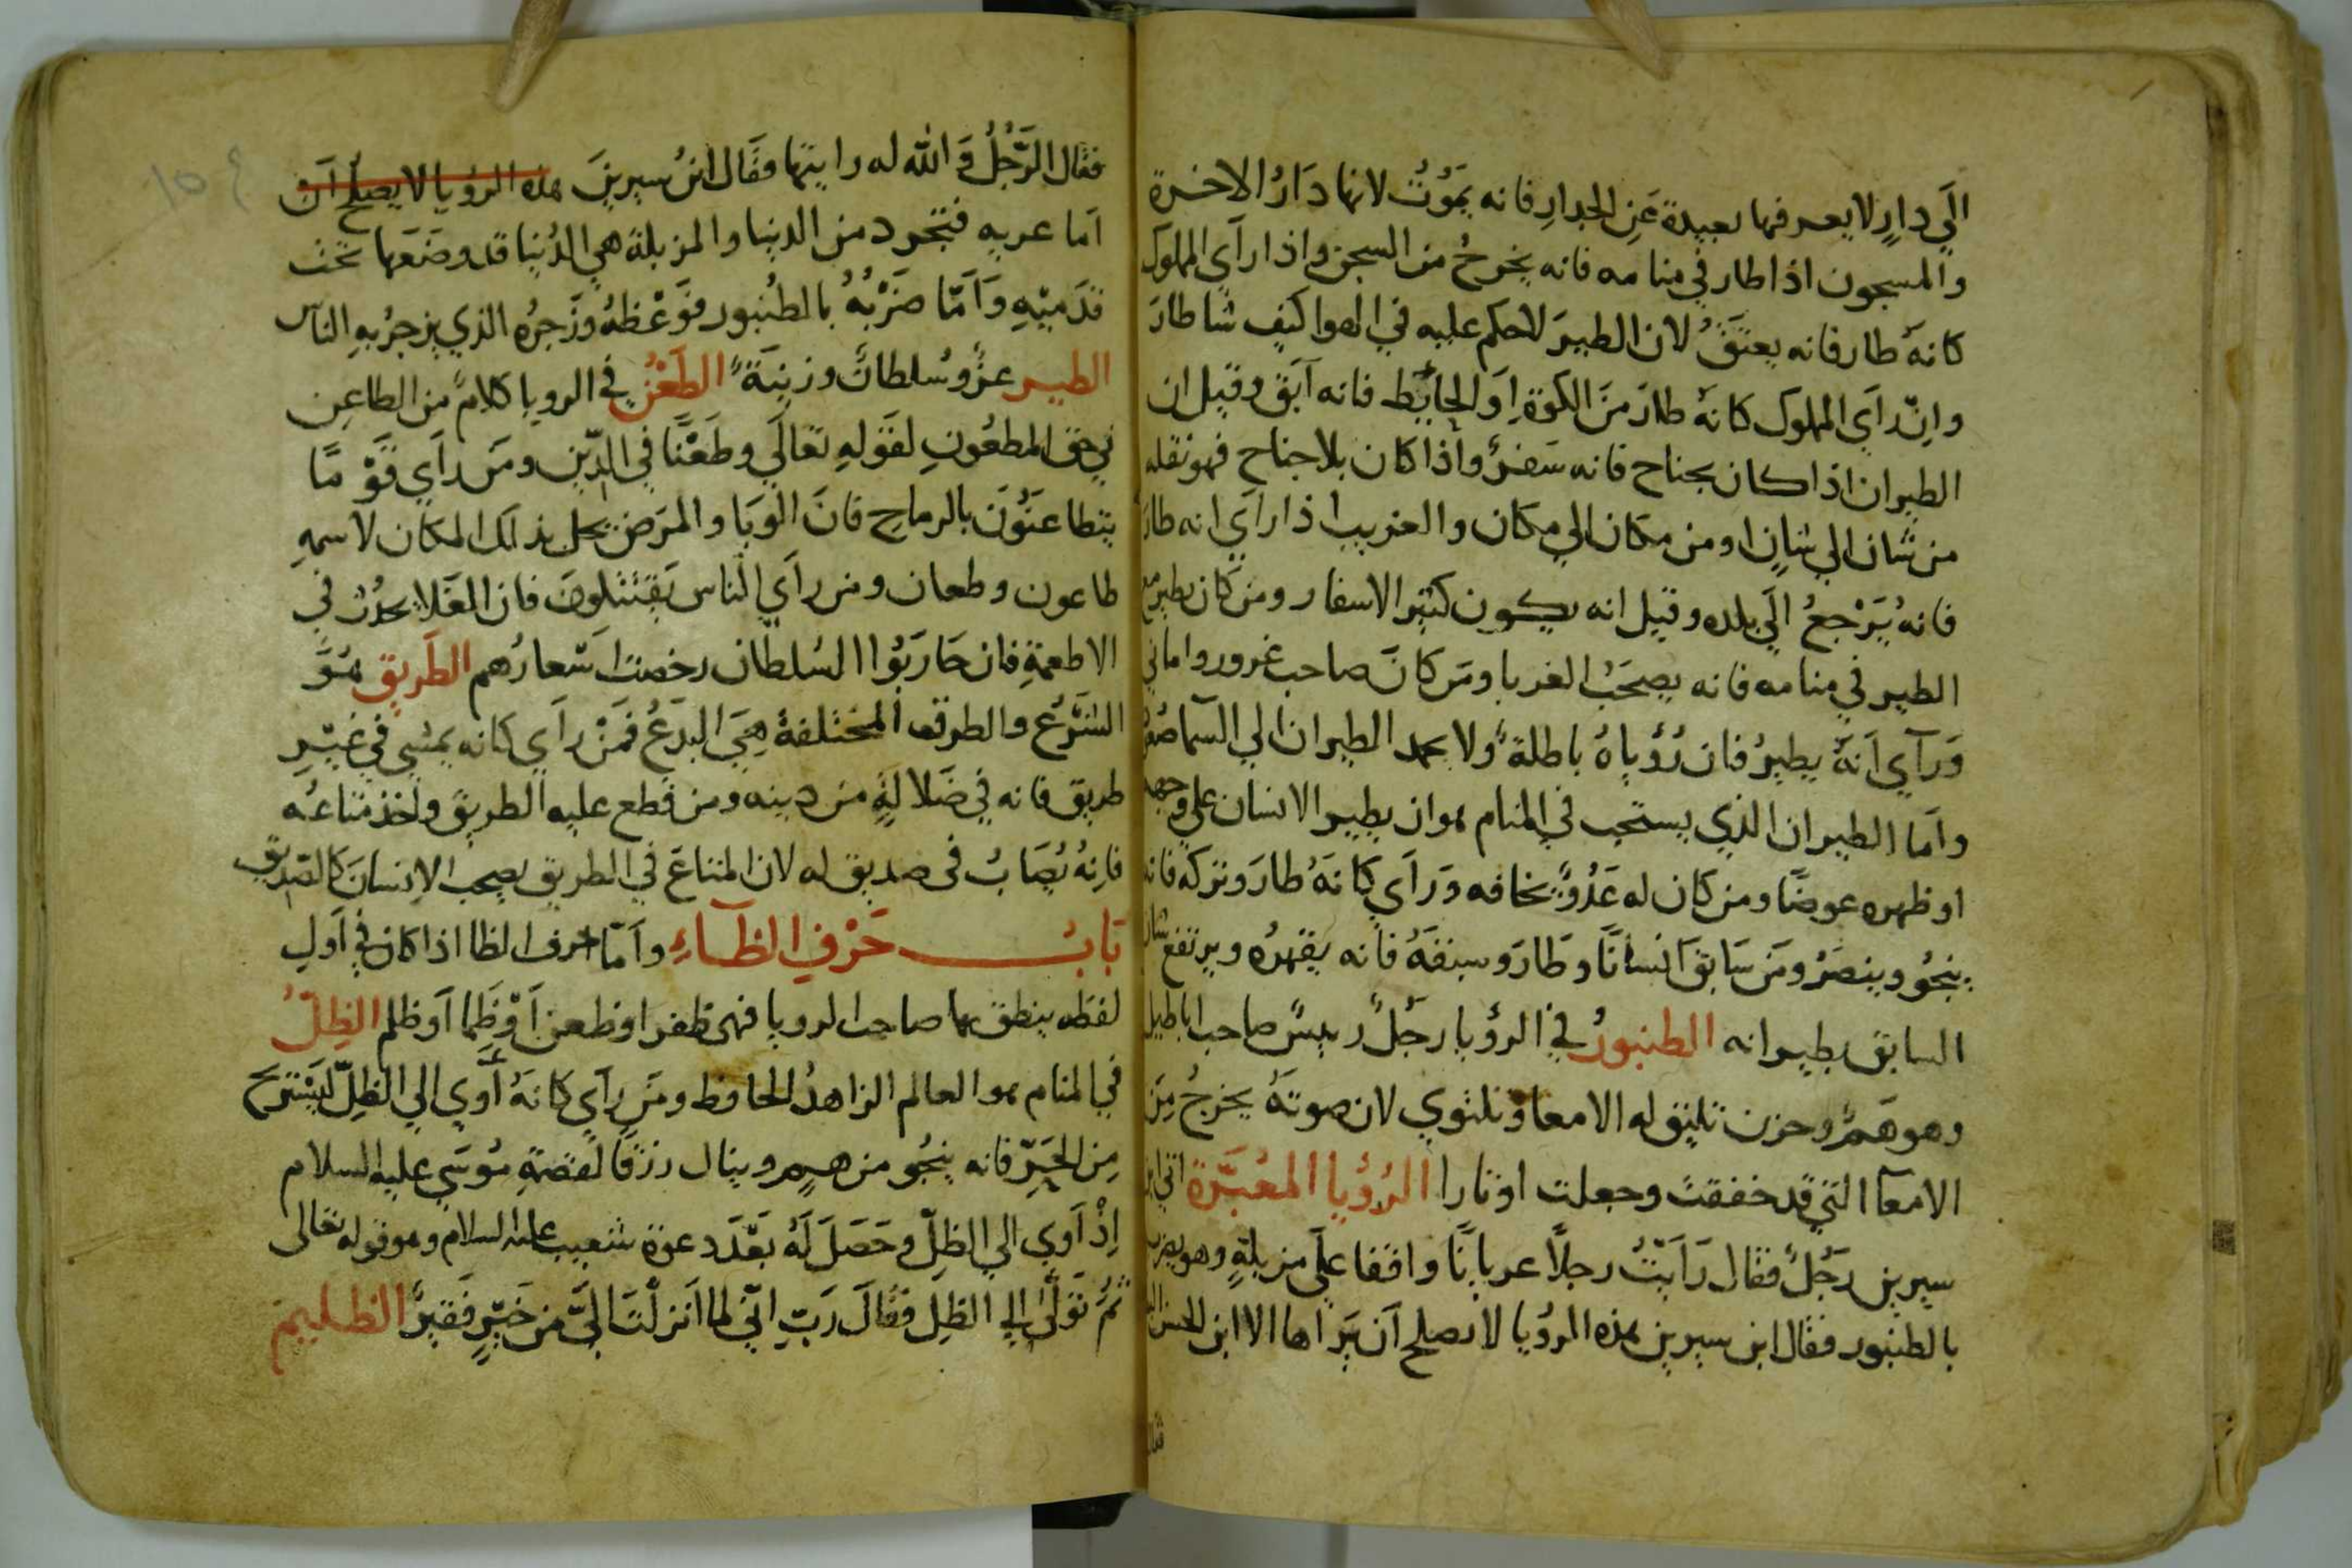 الَي دارٍ لا يعرفها بعيدة عَنِ الجدارِ فانه يَمُوْتُ لانها دَارُ الاخرة
والمسجون اذا طار في منامه فانه يخرجُ من السجن واذا رآي المملوك
كانهُ طار فانه يعتقُ لان الطيرَ لاحكم عليه في الهوا كيف شا طارَ
وانْ رآي المملوك كانهُ طارَ منَ الكوّة اوَ الحائط فانه آبق وقيل ان
الطيران اذا كان بجناح فانه سَفرٌ واذا كان بلا جناح فهو نقله
من شان الي شانٍ او من مكان الي مكان والغريب اذا رآي انه طارَ
فانهُ يَرْجعُ الَي بلده وقيل انه يكون كثير الاسفار ومن كان يطير مع
الطير في منامه فانه يصحَبُ الغربا ومَن كانَ صاحب غرور واماني
وَرآي اَنهُ يطيرُ فان رُؤياهُ باطلةً ولا يحمد الطيران الي السما صُعُدا
واَما الطيران الذي يستحب في المنام هو ان يطير الانسان علي وجهه
او ظهره عرضًا ومن كان له عَدُوٌّ يخافه وَرآي كانهُ طارَ وتركه فانه
ينجُو وينصَرُ ومَن سَابق انسانًا وطَارَ وسبقهُ فانه يقهرُه ويرتفع شان
السابق بطيرانه الطنبورُ في الرؤيا رجُلٌ رييسٌ صاحب اباطيل
وهو هَمٌّ وحزن تليق له الامعا وتلتوي لان صوتهُ يخرجُ مِنَ
الامعآ التي قد خففت وجعلت اوتارا الرُؤيا المعُبَّرة اتي ابن
سيرين رَجُلٌ فقال رَاَيْتُ رجلًا عريانًا واقفا علَي مزبلةٍ وهو يضرب
بالطنبور فقال ابن سيرين هذه الرؤيا لا تصلح اَن يَراها الا ابن الحسن
فقال
فقال الرَّجُلُ وَ الله له رايتها فقَال ابنُ سيرينَ هذه الرؤيا لا يصلح اَن
اَما عريه فتجرد من الدنيا والمزبلة هي الدُنيا قد وضَعَها تحت
قدَميْهِ وَاَمَّا ضَرْبُهُ بالطنبور فوَعْظهُ وزَجرُه الذي يزجرُ بهِ الناس
الطير عزٌّ وسُلطانٌ وزينَةً الطَعْنُ في الرويا كلامٌ من الطاعِن
في حق المطعُونِ لقَولهِ تعَالَي وطَعْنًا في الدّين ومَن رآي قَوْمًا
يتطاعنَوُنَ بالرماحِ فانَ الوَبَا والمرَض يحل بذلك المكان لاسمهِ
طاعون وطعان ومن رآي الناس يَقتتلونَ فان الغَلا يحدُث في
الاطعمةِ فان حَارَبُوا السُلطان رخصت اَسعارُهم الطَريق هُوَ
الشَرْع والطرق المختلفةُ هِيَ البدَعُ فمَنْ رآي كانه يمشي في غَيْرِ
طريق فانه في ضَلالةٍ من دينه ومن قطع عليه الطريق واخذ متاعُه
فانهُ يُصَابُ في صديق له لان المتاعَ في الطريق يصحب الانسانَ كالصَديق
بَابُ حَرْفِ الظآءِ واَمّا حرف الظا اذا كان في اَولِ
لفظه ينطق بها صاحب الرويا فهي ظفر او ظعن اَوْ ظَما اَو ظلم الظِلُّ
في المنام هو العالم الزاهدُ الحافظ ومَن رآي كانهُ اَوي الي الظِلّ ليَسْتريح
مِن الحَرِّ فانه ينجُو من هم وينال رزقًا لقصةِ مُوسَي عليه السلام
اِذْ آوي الي الظِلّ وحَصَلَ لَهُ بَعْدَ دعوة شعيب عليه السلام وهو قوله تعَالي
ثمُ تَولّي الي الظِل فقَالَ رَبِ انّي لما اَنزلْتَ الَيَّ من خَيْرٍ فقيرٌ الظليم